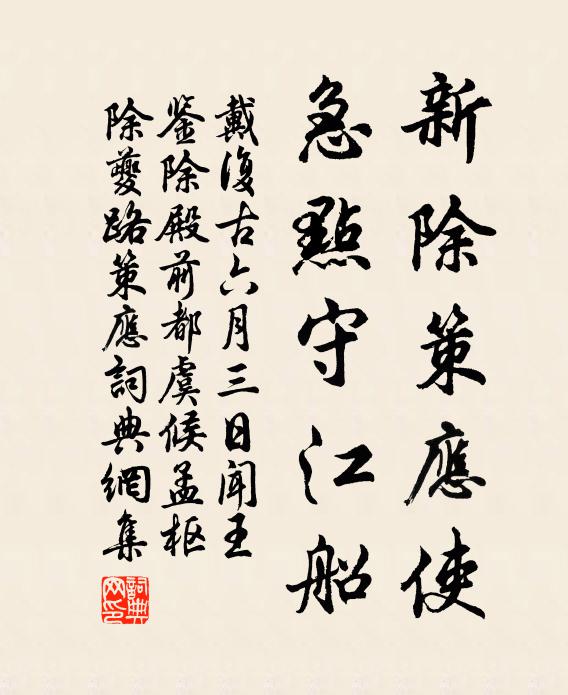 新除策應使
急點守江船
戴復古六月三日聞王
鉴除殿前都虞候孟枢
除夔路策應詞典網集
詞典
网印